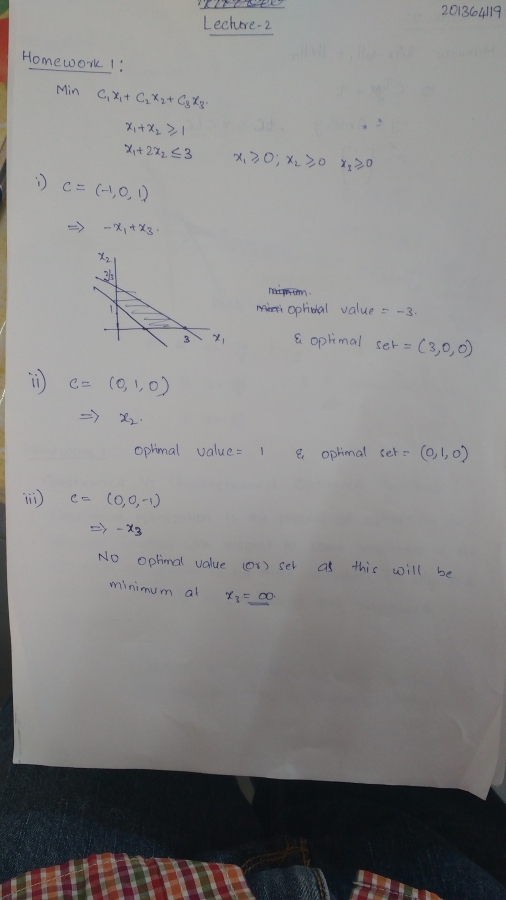 201364119
Lecture-2
Homework 1:
Min C₁x₁ + C₂x₂ + C₃x₃.
x₁+x₂ ≥ 1
x₁+2x₂ ≤ 3 x₁ ≥ 0; x₂ ≥ 0 x₃ ≥ 0
i) C = (-1, 0, 1)
⇒ -x₁ + x₃.
x₂
3/2
1
3 x₁
optimal value = -3.
& optimal set = (3,0,0)
ii) C = (0, 1, 0)
⇒ x₂.
optimal value = 1 & optimal set = (0,1,0)
iii) C = (0,0,-1)
⇒ -x₃
No optimal value (or) set as this will be
minimum at x₃ = ∞.